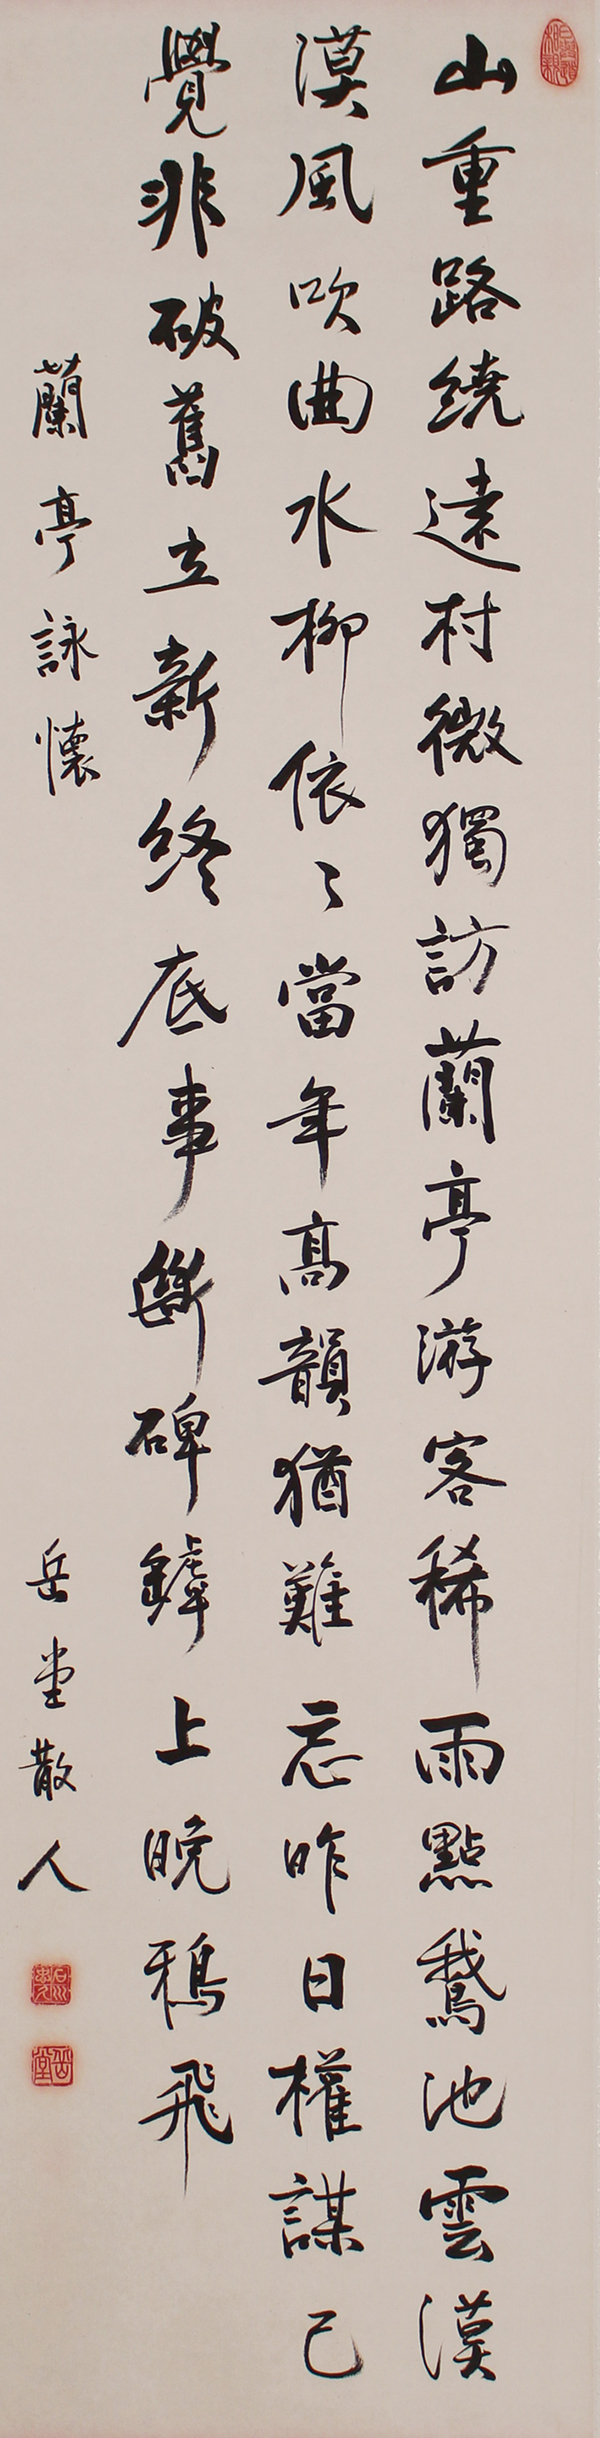 山重路繞遠村微獨訪蘭亭游客稀雨點鵝池雲漠
漠風吹曲水柳依〻當年高韻猶難忘昨日權謀已
覺非破舊立新終底事斷碑罅上晚鴉飛
蘭亭詠懷
岳堂散人
岳堂